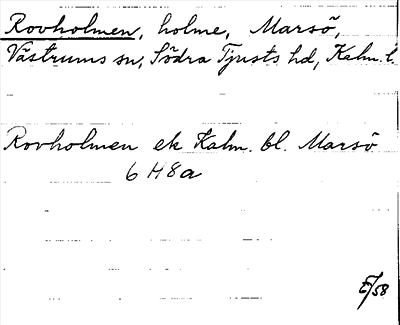 Rovholmen, holme, Marsö,
Västrums sn, Södra Tjusts hd, Kalm. l.
Rovholmen ek Kalm. bl. Marsö
6 H 8a
E/58